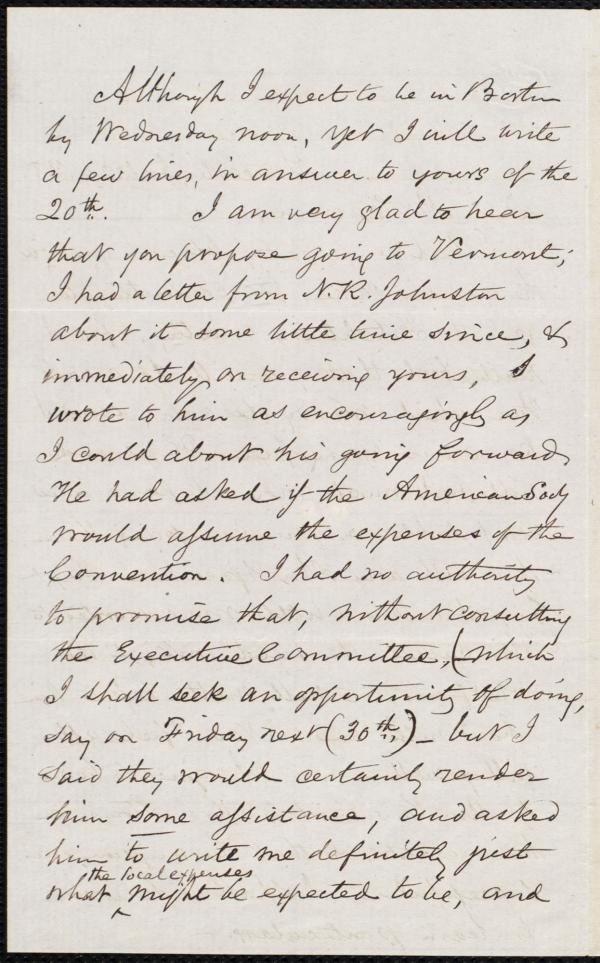 Although I expect to be in Boston
by Wednesday noon, yet I will write
a few lines, in answer to yours of the
20th. I am very glad to hear
that you propose going to Vermont;
I had a letter from N. R. Johnston
about it some little time since, &
immediately on receiving yours, I
wrote to him as encouragingly as
I could about his going forward.
He had asked if the American Socy
would assume the expenses of the
Convention. I had no authority
to promise that, without consulting
the Executive Committee, (which
I shall seek an opportunity of doing,
say on Friday next (30th,) – but I
said they would certainly render
him some assistance, and asked
him to write me definitely just
the local expenses
what ‸ might be expected to be, and